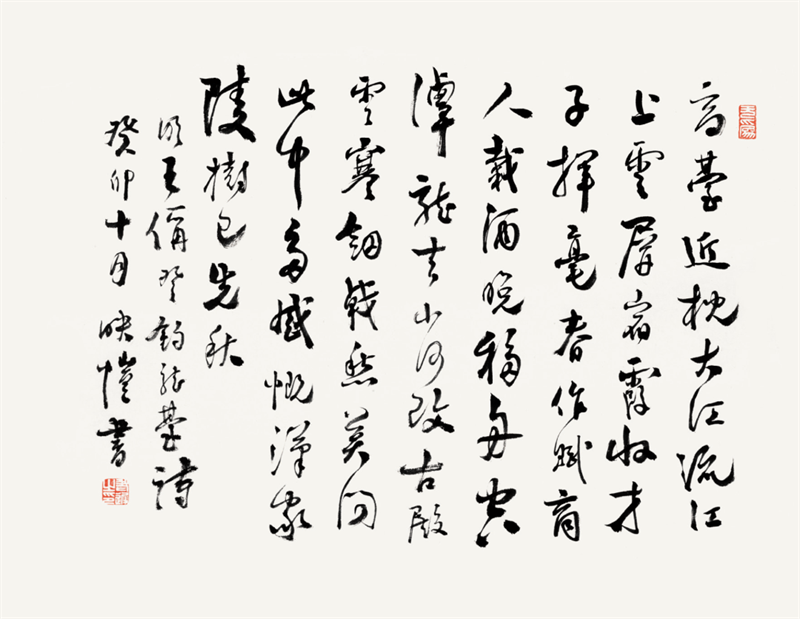 高臺近枕大江流江
上雲屏宿霞收才
子揮毫春作賦商
人載酒晚移舟空
潭龍去山河改古殿
雲寒劍戟愁莫問
此中多感慨漢家
陵樹已先秋
明王偁登釣龍臺詩
癸卯十月映愷書